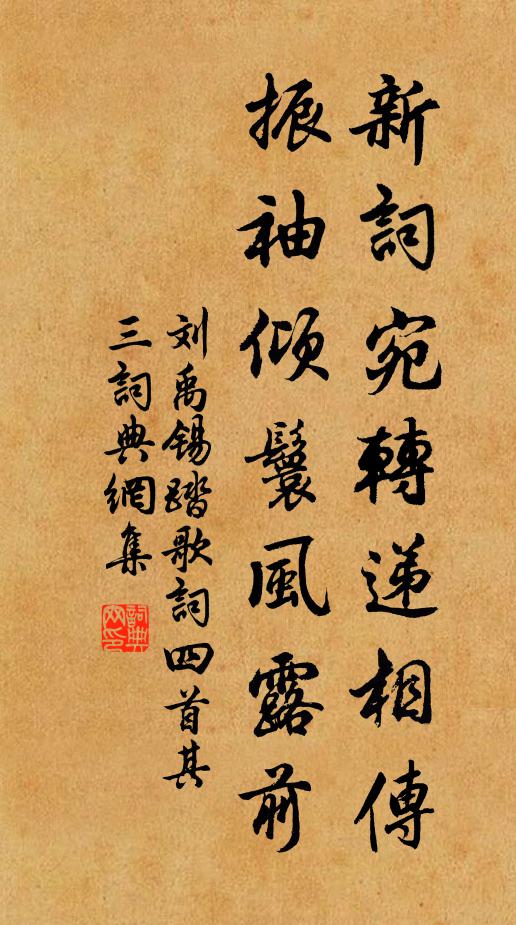 新詞宛轉遞相傳
振袖傾鬟風露前
刘禹锡踏歌詞四首其
三詞典網集
詞典網印